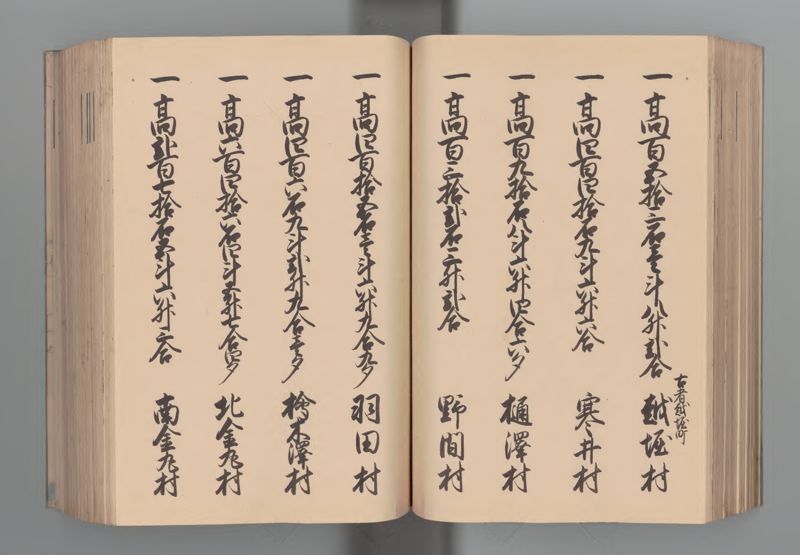 一 高百五拾三石壱斗八升弐合 越堀村
古者越堀町
一 高四百四拾石九斗六升六合 寒井村
一 高百九拾石八斗六升四合六夕 樋澤村
一 高百三拾弐石三升弐合 野間村
一 高四百拾五石壱斗六升九合九夕 羽田村
一 高四百六石九斗弐升九合壱夕 檜木澤村
一 高六百四拾六石四斗五升七合四夕 北金丸村
一 高弐百七拾石五斗六升三合 南金丸村